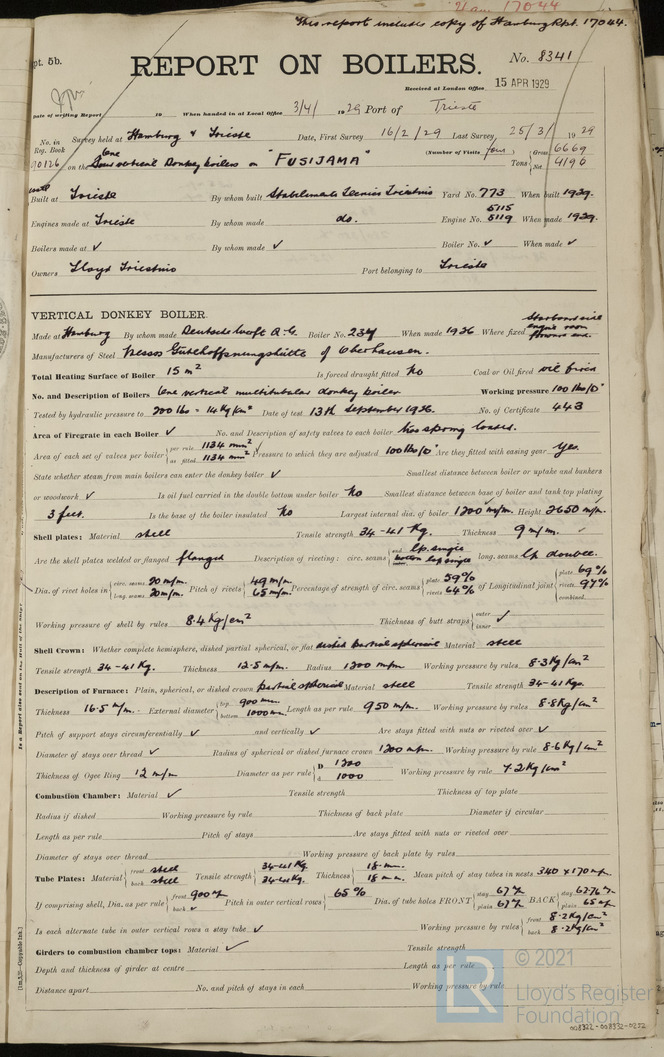 This report includes copy of Hamburg Rpt. 17044.
pt. 5b.
REPORT ON BOILERS.
No. 8341
Received at London Office 15 APR 1929
Date of writing Report 19 When handed in at Local Office 3/4/ 1929 Port of Trieste
No. in Reg. Book Survey held at Hamburg & Trieste Date, First Survey 16/2/29 Last Survey 25/3/ 1929
90126 on the One vertical Donkey boilers on "FUSIJAMA" (Number of Visits four) Tons { Gross 6669 Net 4196
Built at Trieste By whom built Stabilimento Tecnico Triestino Yard No. 773 When built 1929.
Engines made at Trieste By whom made do. Engine No. 5115 5119 When made 1929.
Boilers made at ✓ By whom made ✓ Boiler No. ✓ When made ✓
Owners Lloyd Triestino Port belonging to Trieste
VERTICAL DONKEY BOILER.
Made at Hamburg By whom made Deutsche Werft A.G. Boiler No. 234 When made 1926 Where fixed Starboard side engine room forward end.
Manufacturers of Steel Messrs Gutehoffnungshütte of Oberhausen.
Total Heating Surface of Boiler 15 m² Is forced draught fitted No Coal or Oil fired oil fired
No. and Description of Boilers One vertical multitubular donkey boiler Working pressure 100 lbs/□"
Tested by hydraulic pressure to 200 lbs = 14 Kg/cm² Date of test 13th September 1926. No. of Certificate 443
Area of Firegrate in each Boiler ✓ No. and Description of safety valves to each boiler Two spring loaded.
Area of each set of valves per boiler { per rule 1134 mm² as fitted 1134 mm² Pressure to which they are adjusted 100 lbs/□" Are they fitted with easing gear Yes.
State whether steam from main boilers can enter the donkey boiler ✓ Smallest distance between boiler or uptake and bunkers
or woodwork ✓ Is oil fuel carried in the double bottom under boiler No Smallest distance between base of boiler and tank top plating
3 feet. Is the base of the boiler insulated No Largest internal dia. of boiler 1200 m/m. Height 2650 m/m.
Shell plates: Material steel Tensile strength 34-41 Kg. Thickness 9 m/m.
Are the shell plates welded or flanged flanged Description of riveting: circ. seams { end lp. single bottom lap single long. seams lp double.
Dia. of rivet holes in { circ. seams 20 m/m. long. seams 20 m/m. Pitch of rivets { 49 m/m. 65 m/m. Percentage of strength of circ. seams { plate 59% rivets 64% of Longitudinal joint { plate 69% rivets 97% combined
Working pressure of shell by rules 8.4 Kg/cm² Thickness of butt straps { outer ✓ inner
Shell Crown: Whether complete hemisphere, dished partial spherical, or flat dished partial spherical Material steel
Tensile strength 34-41 Kg. Thickness 12.5 m/m. Radius 1200 m/m Working pressure by rules 8.3 Kg/cm²
Description of Furnace: Plain, spherical, or dished crown partial spherical Material steel Tensile strength 34-41 Kgs.
Thickness 16.5 m/m. External diameter { top 900 m.m. bottom 1000 m.m. Length as per rule 950 m/m. Working pressure by rules 8.8 Kg/cm²
Pitch of support stays circumferentially ✓ and vertically ✓ Are stays fitted with nuts or riveted over ✓
Diameter of stays over thread ✓ Radius of spherical or dished furnace crown 1200 m/m. Working pressure by rule 8.6 Kg/cm²
Thickness of Ogee Ring 12 m/m Diameter as per rule { D 1200 d 1000 Working pressure by rule 7.2 Kg/cm²
Combustion Chamber: Material ✓ Tensile strength Thickness of top plate
Radius if dished Working pressure by rule Thickness of back plate Diameter if circular
Length as per rule Pitch of stays Are stays fitted with nuts or riveted over
Diameter of stays over thread Working pressure of back plate by rules
Tube Plates: Material { front steel back steel Tensile strength { 34-41 Kg. 34-41 Kg. Thickness { 18 m.m. 18 m.m. Mean pitch of stay tubes in nests 340 x 170 m/m.
If comprising shell, Dia. as per rule { front 900 m/m back ✓ Pitch in outer vertical rows { 65% Dia. of tube holes FRONT { stay 67 m/m plain 67 m/m BACK { stay 63.76 m/m plain 65 m/m
Is each alternate tube in outer vertical rows a stay tube ✓ Working pressure by rules { front 8.2 Kg/cm² back 8.2 Kg/cm²
Girders to combustion chamber tops: Material ✓ Tensile strength
Depth and thickness of girder at centre Length as per rule
Distance apart No. and pitch of stays in each Working pressure by rule
Is a Report also sent on the Hull of the Ship?
© 2021
Lloyd's Register
Foundation
008322-008332-0272